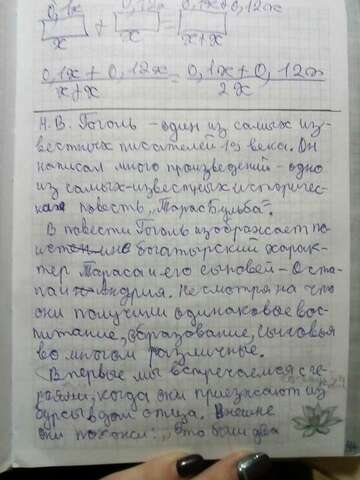 0,1x 0,12x 0,1x+0,12x
x + x = x+x
0,1x + 0,12x = 0,1x + 0,12x
x+x 2x
Н.В. Гоголь - один из самых из-
вестных писателей 19 века. Он
написал много произведений - одно
из самых известных историчес-
кая повесть „Тарас Бульба".
В повести Гоголь изображает по
истине богатырский харак-
тер Тараса и его сыновей - Оста-
па и Андрия. Не смотря на что
они получили одинаковое вос-
питание, образование, сыновья
во многом различные.
Впервые мы встречаемся с ге-
роями, когда они приезжают из
бурсы в дом отца. Внешне
они похожи: „Это были два